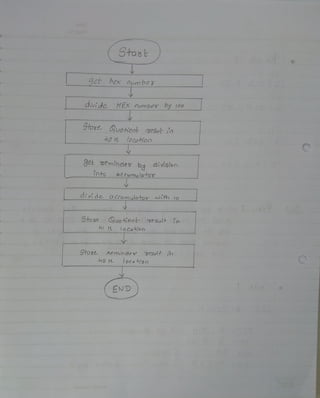 Start
get hex number
divide HEX number by 100
Store Quotient result in
location
get reminder by division
into accumulator
divide accumulator with 10
Store Quotient result in
location
Store reminder result in
location
END